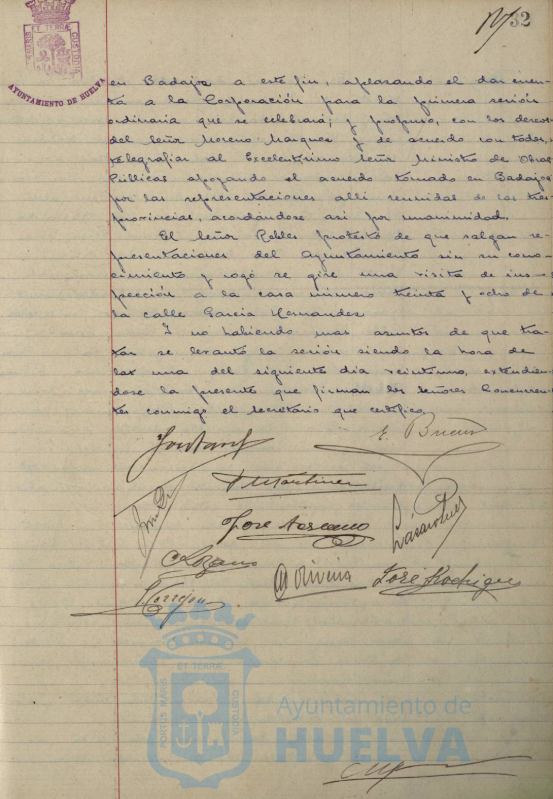 32
PORTUS MARIS ET TERRÆ CUSTODIA
AYUNTAMIENTO DE HUELVA
en Badajoz a este fin, aplazando el dar cuen-
ta a la Corporación para la primera sesión
ordinaria que se celebrará; y propuso, con los deseos
del Señor Moreno Marquez y de acuerdo con todos,
telegrafiar al Excelentisimo Señor Ministro de Obras
Públicas apoyando el acuerdo tomado en Badajoz
por las representaciones alli reunidas de las tres
provincias, acordándose asi por unanimidad.
El Señor Robles protestó de que salgan re-
presentaciones del Ayuntamiento sin su cono-
cimiento y rogó se gire una visita de ins-
pección a la casa número treinta y ocho de
la calle Garcia Hernandez
Y no habiendo mas asuntos de que tra-
tar se levantó la sesión siendo la hora de
las una del siguiente dia veintiuno, extendien-
dose la presente que firman los señores Concurren-
tes conmigo el secretario que certifico.
E. Bueno
Martinez
José Toscano
Lozano
Oliveira
José Rodriguez
PORTUS MARIS ET TERRÆ CUSTODIA
Ayuntamiento de
HUELVA